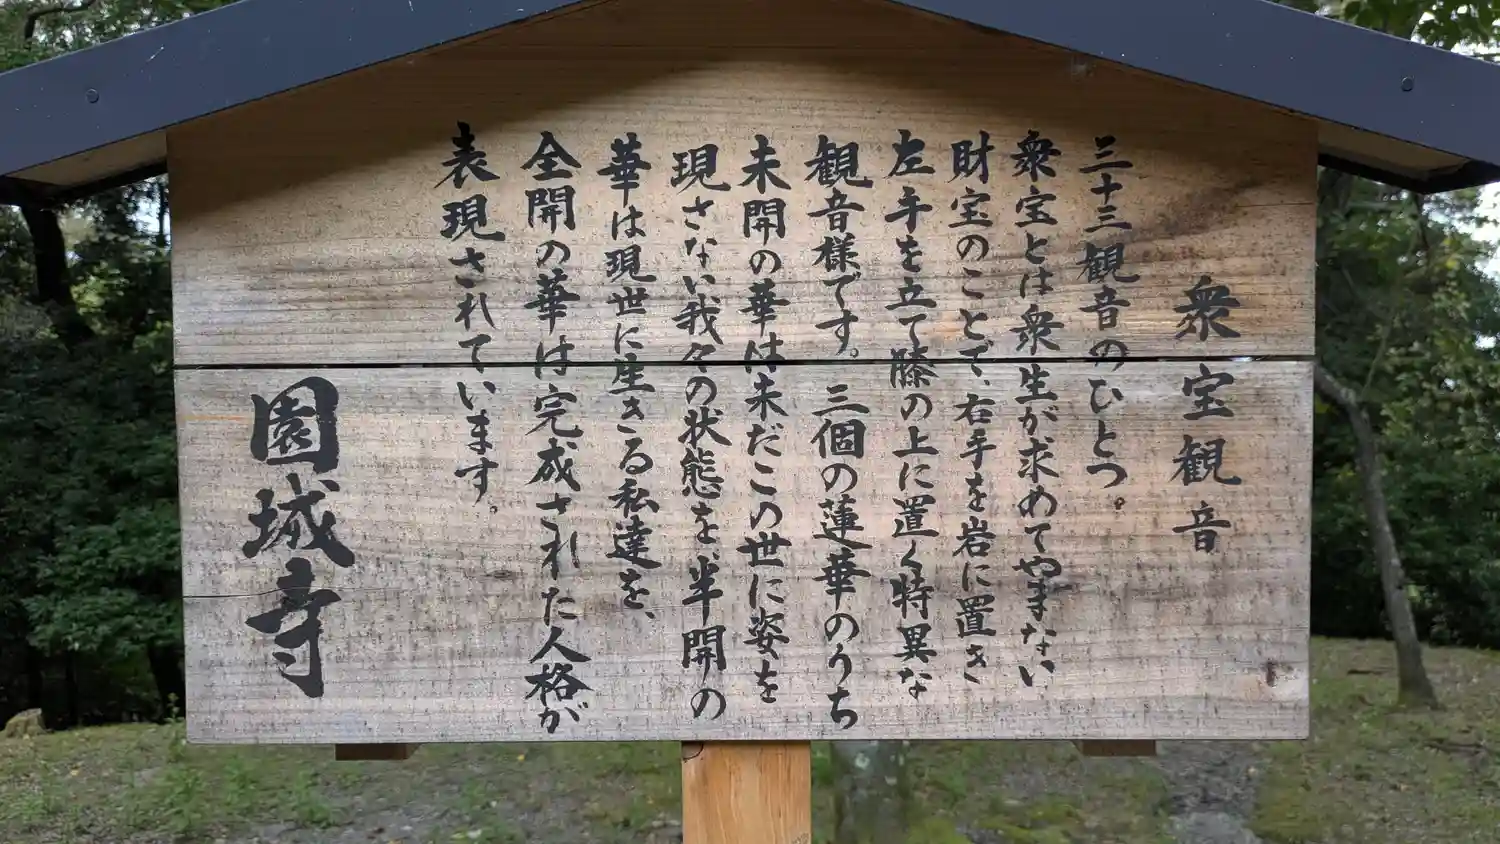 衆宝観音
三十三観音のひとつ。
衆宝とは衆生が求めてやまない
財宝のことで、右手を岩に置き
左手を立て膝の上に置く特異な
観音様です。三個の蓮華のうち
未開の華は未だこの世に姿を
現さない我々の状態を、半開の
華は現世に生きる私達を、
全開の華は完成された人格が
表現されています。
園城寺